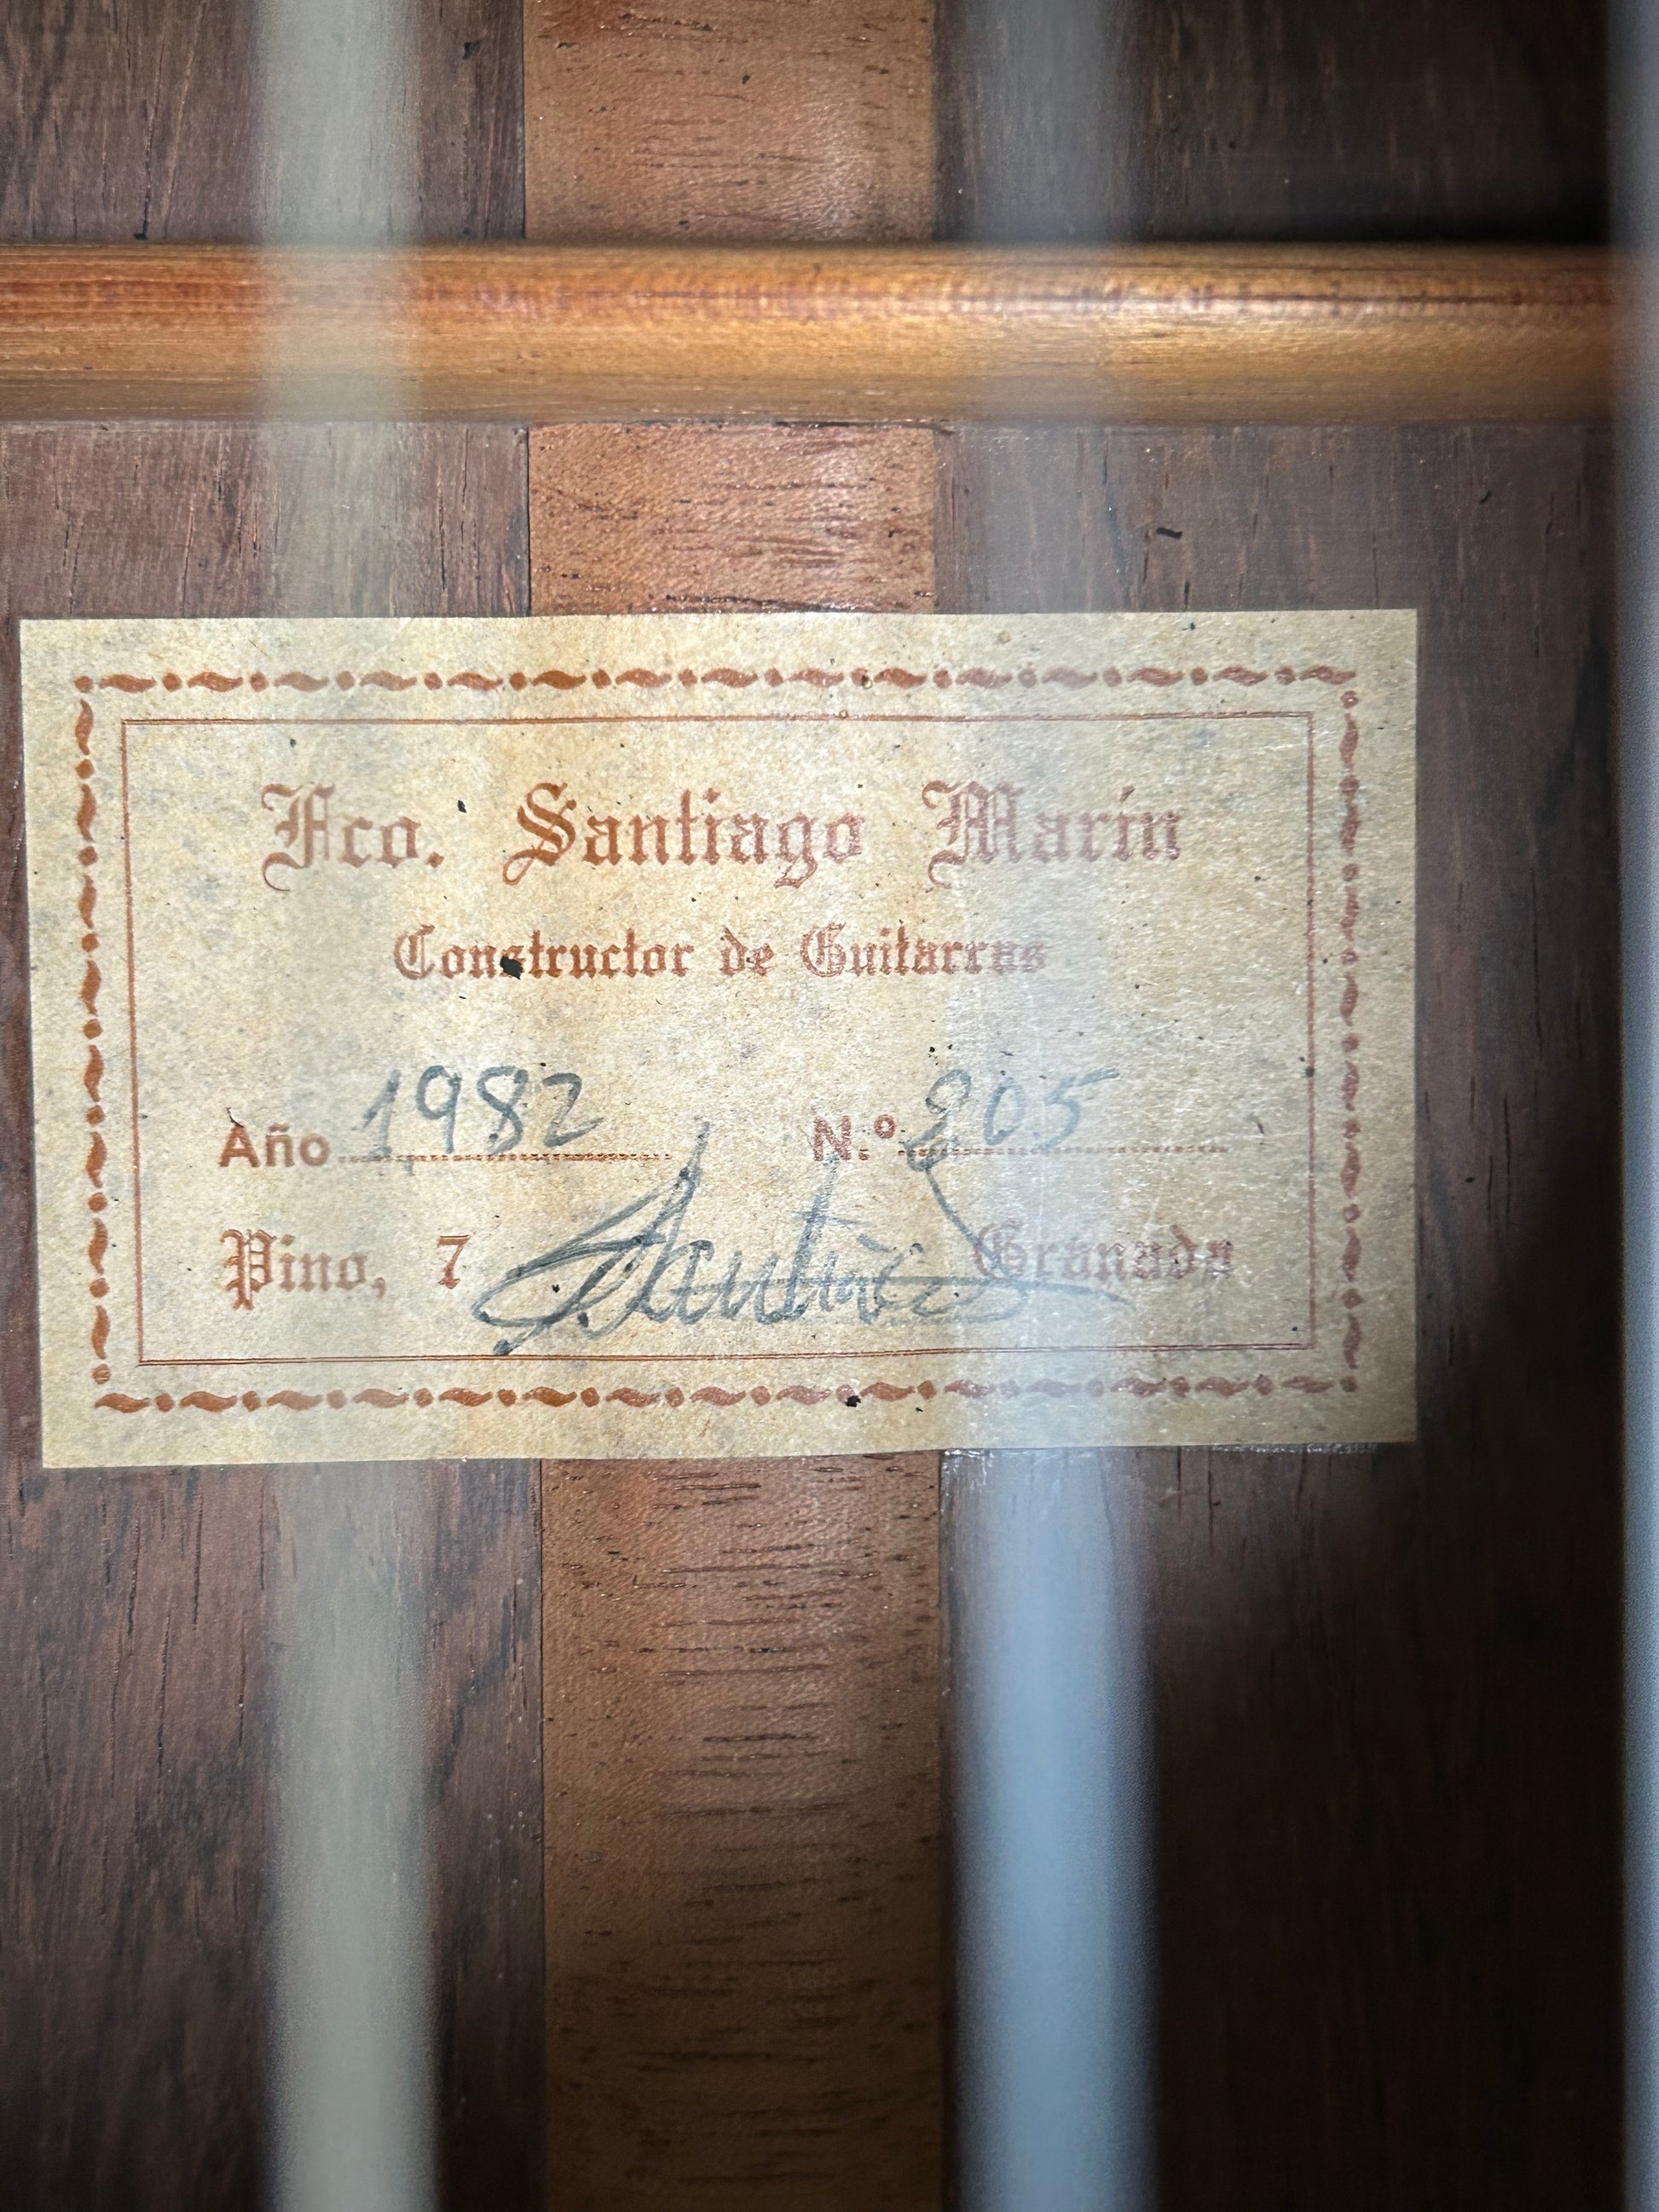 Fco. Santiago Marín
Constructor de Guitarras
Año 1982 N.º 205
Pino, 7 Granada